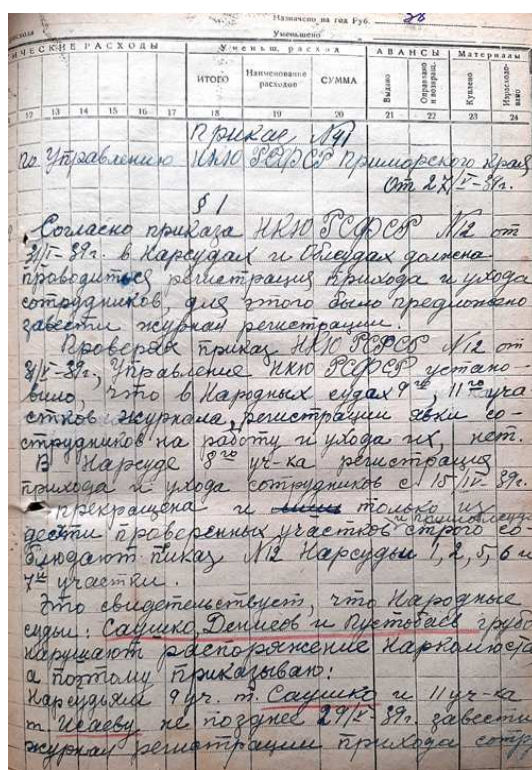 Назначено на год Руб. 26
Уменьшено
ИЧЕСКИЕ РАСХОДЫ
Уменьш. расход
АВАНСЫ
Материалы
ИТОГО
Наименование расходов
СУММА
Выдано
Оправдано и возвращ.
Куплено
Израсходовано
12 13 14 15 16 17 18 19 20 21 22 23 24
Приказ №41
По Управлению НКЮ РСФСР Приморского Края
От 27/V-39г.
§ 1
Согласно приказа НКЮ РСФСР №12 от
31/I-39г. в Нарсудах и Облсудах должна
проводиться регистрация прихода и ухода
сотрудников, для этого было предложено
завести журнал регистрации.
Проверяя приказ НКЮ РСФСР №12 от
31/I-39г., Управление НКЮ РСФСР устано-
вило, что в Народных судах 9го, 11го уча
стков журнала, регистрации явки со-
трудников на работу и ухода их, нет.
В Нарсуде 8го уч-ка регистрация
прихода и ухода сотрудников с 15/IV-39г.
прекращена и только из
десяти проверенных участков строго со-
блюдают приказ №12 Нарсудьи 1, 2, 5, 6 и
7го участки.
Это свидетельствует, что Народные
судьи: Саушко, Денисов и Пустобаев грубо
нарушают распоряжение Наркомюста
а поэтому приказываю:
Нарсудьям 9 уч. т. Саушко и 11 уч-ка
т. Исаеву не позднее 29/V-39г. завести
журнал регистрации прихода сотр